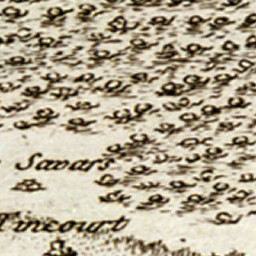 Savari
Tincourt